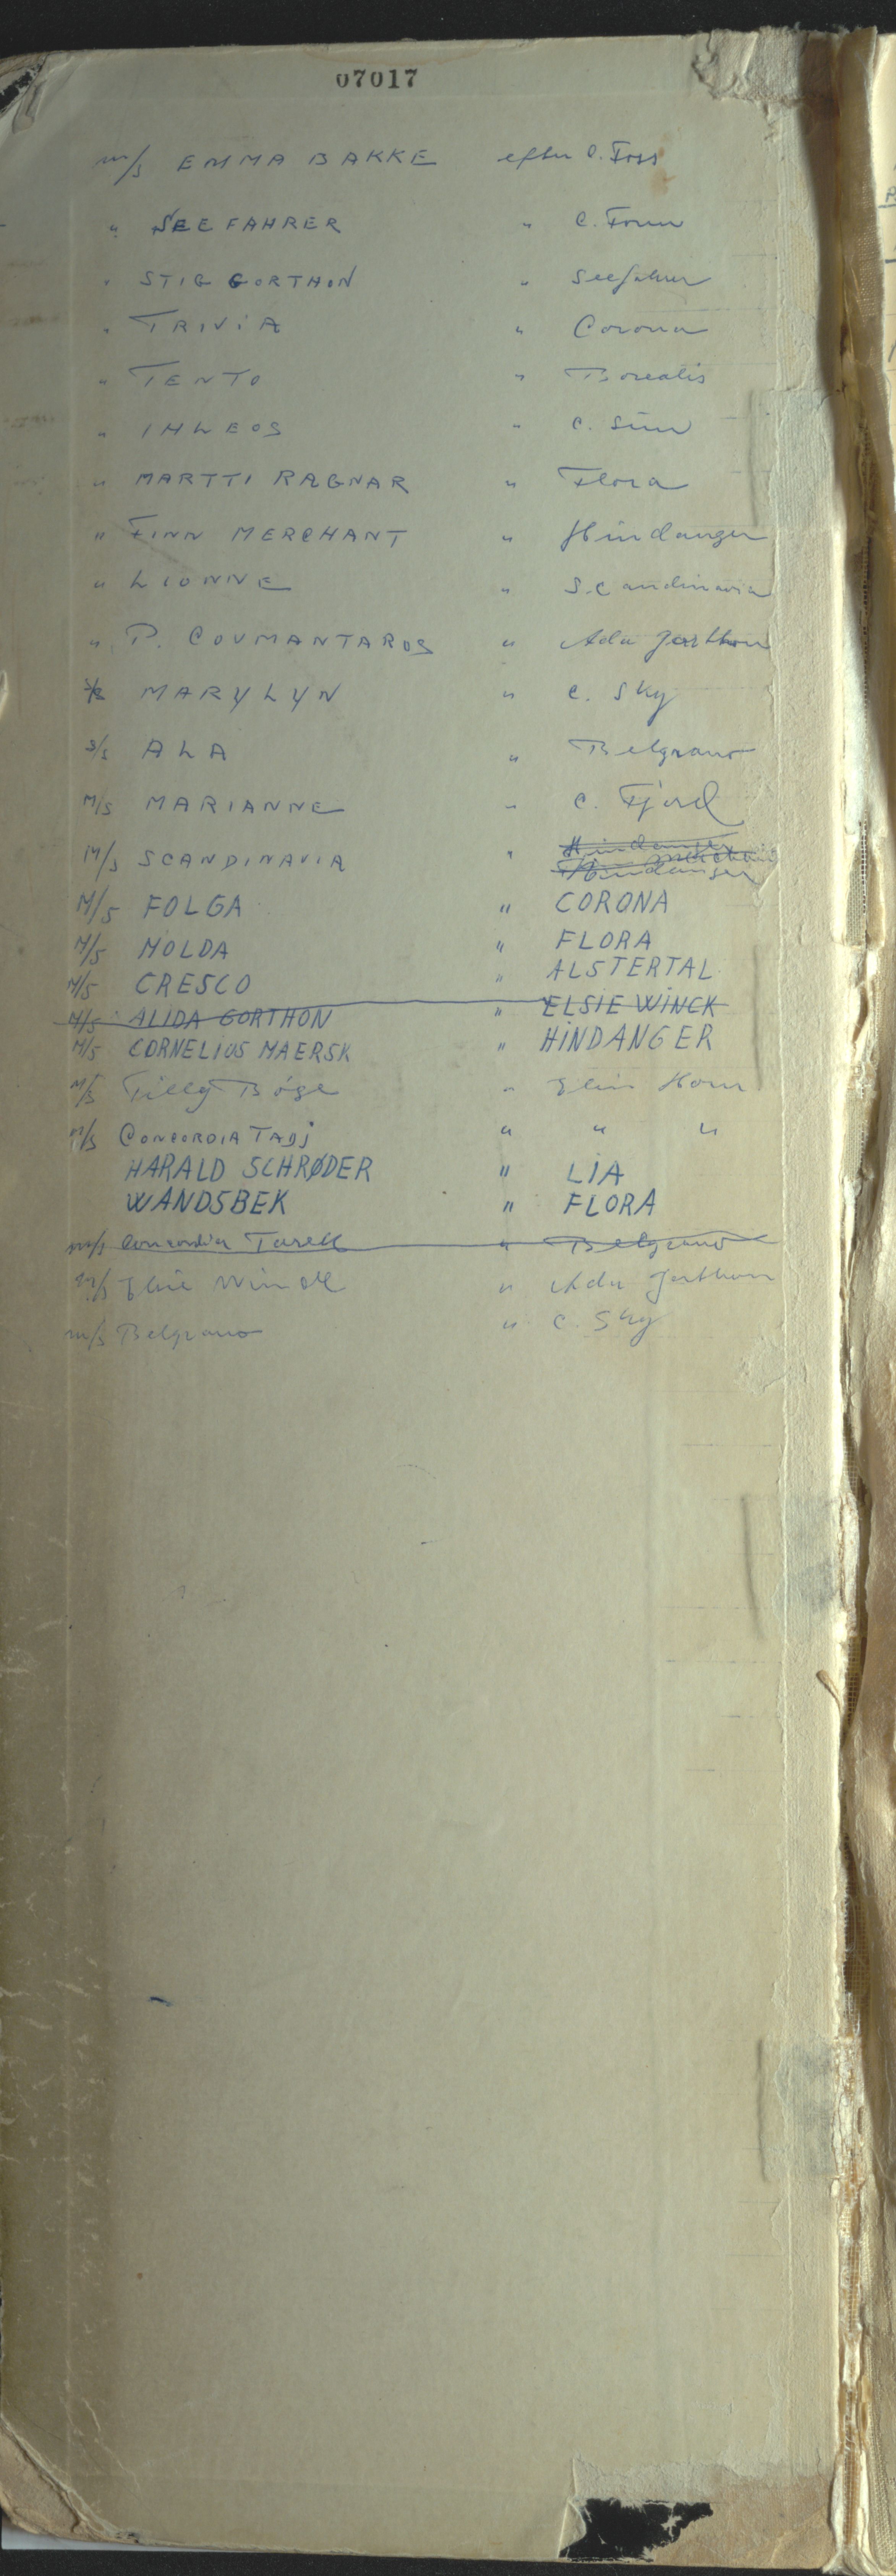 07017
m/s EMMA BAKKE efter C. Foss
" SEEFAHRER " C. Fonn
" STIG GORTHON " Seefahrer
" TRIVIA " Corona
" TENTO " Borealis
" IHLEOS " C. Sun
" MARTTI RAGNAR " Flora
" FINN MERCHANT " Hindanger
" LIONNE " Scandinavia
" P. COUMANTAROS " Ada Gorthon
MARYLYN " C. Sky
s/s ALA " Belgrano
M/S MARIANNE " C. Fjord
M/S SCANDINAVIA " Hindanger
Hindanger
M/S FOLGA " CORONA
M/S MOLDA " FLORA
M/S CRESCO " ALSTERTAL
M/S ALIDA GORTHON " ELSIE WINCK
M/S CORNELIUS MAERSK " HINDANGER
m/s Tilly Bøge " Elin Horn
m/s CONCORDIA TADJ " " "
HARALD SCHRØDER " LIA
WANDSBEK " FLORA
m/s Concordia Tarek " Belgrano
m/s Elsie Winck " Ada Gorthon
m/s Belgrano " C. Sky